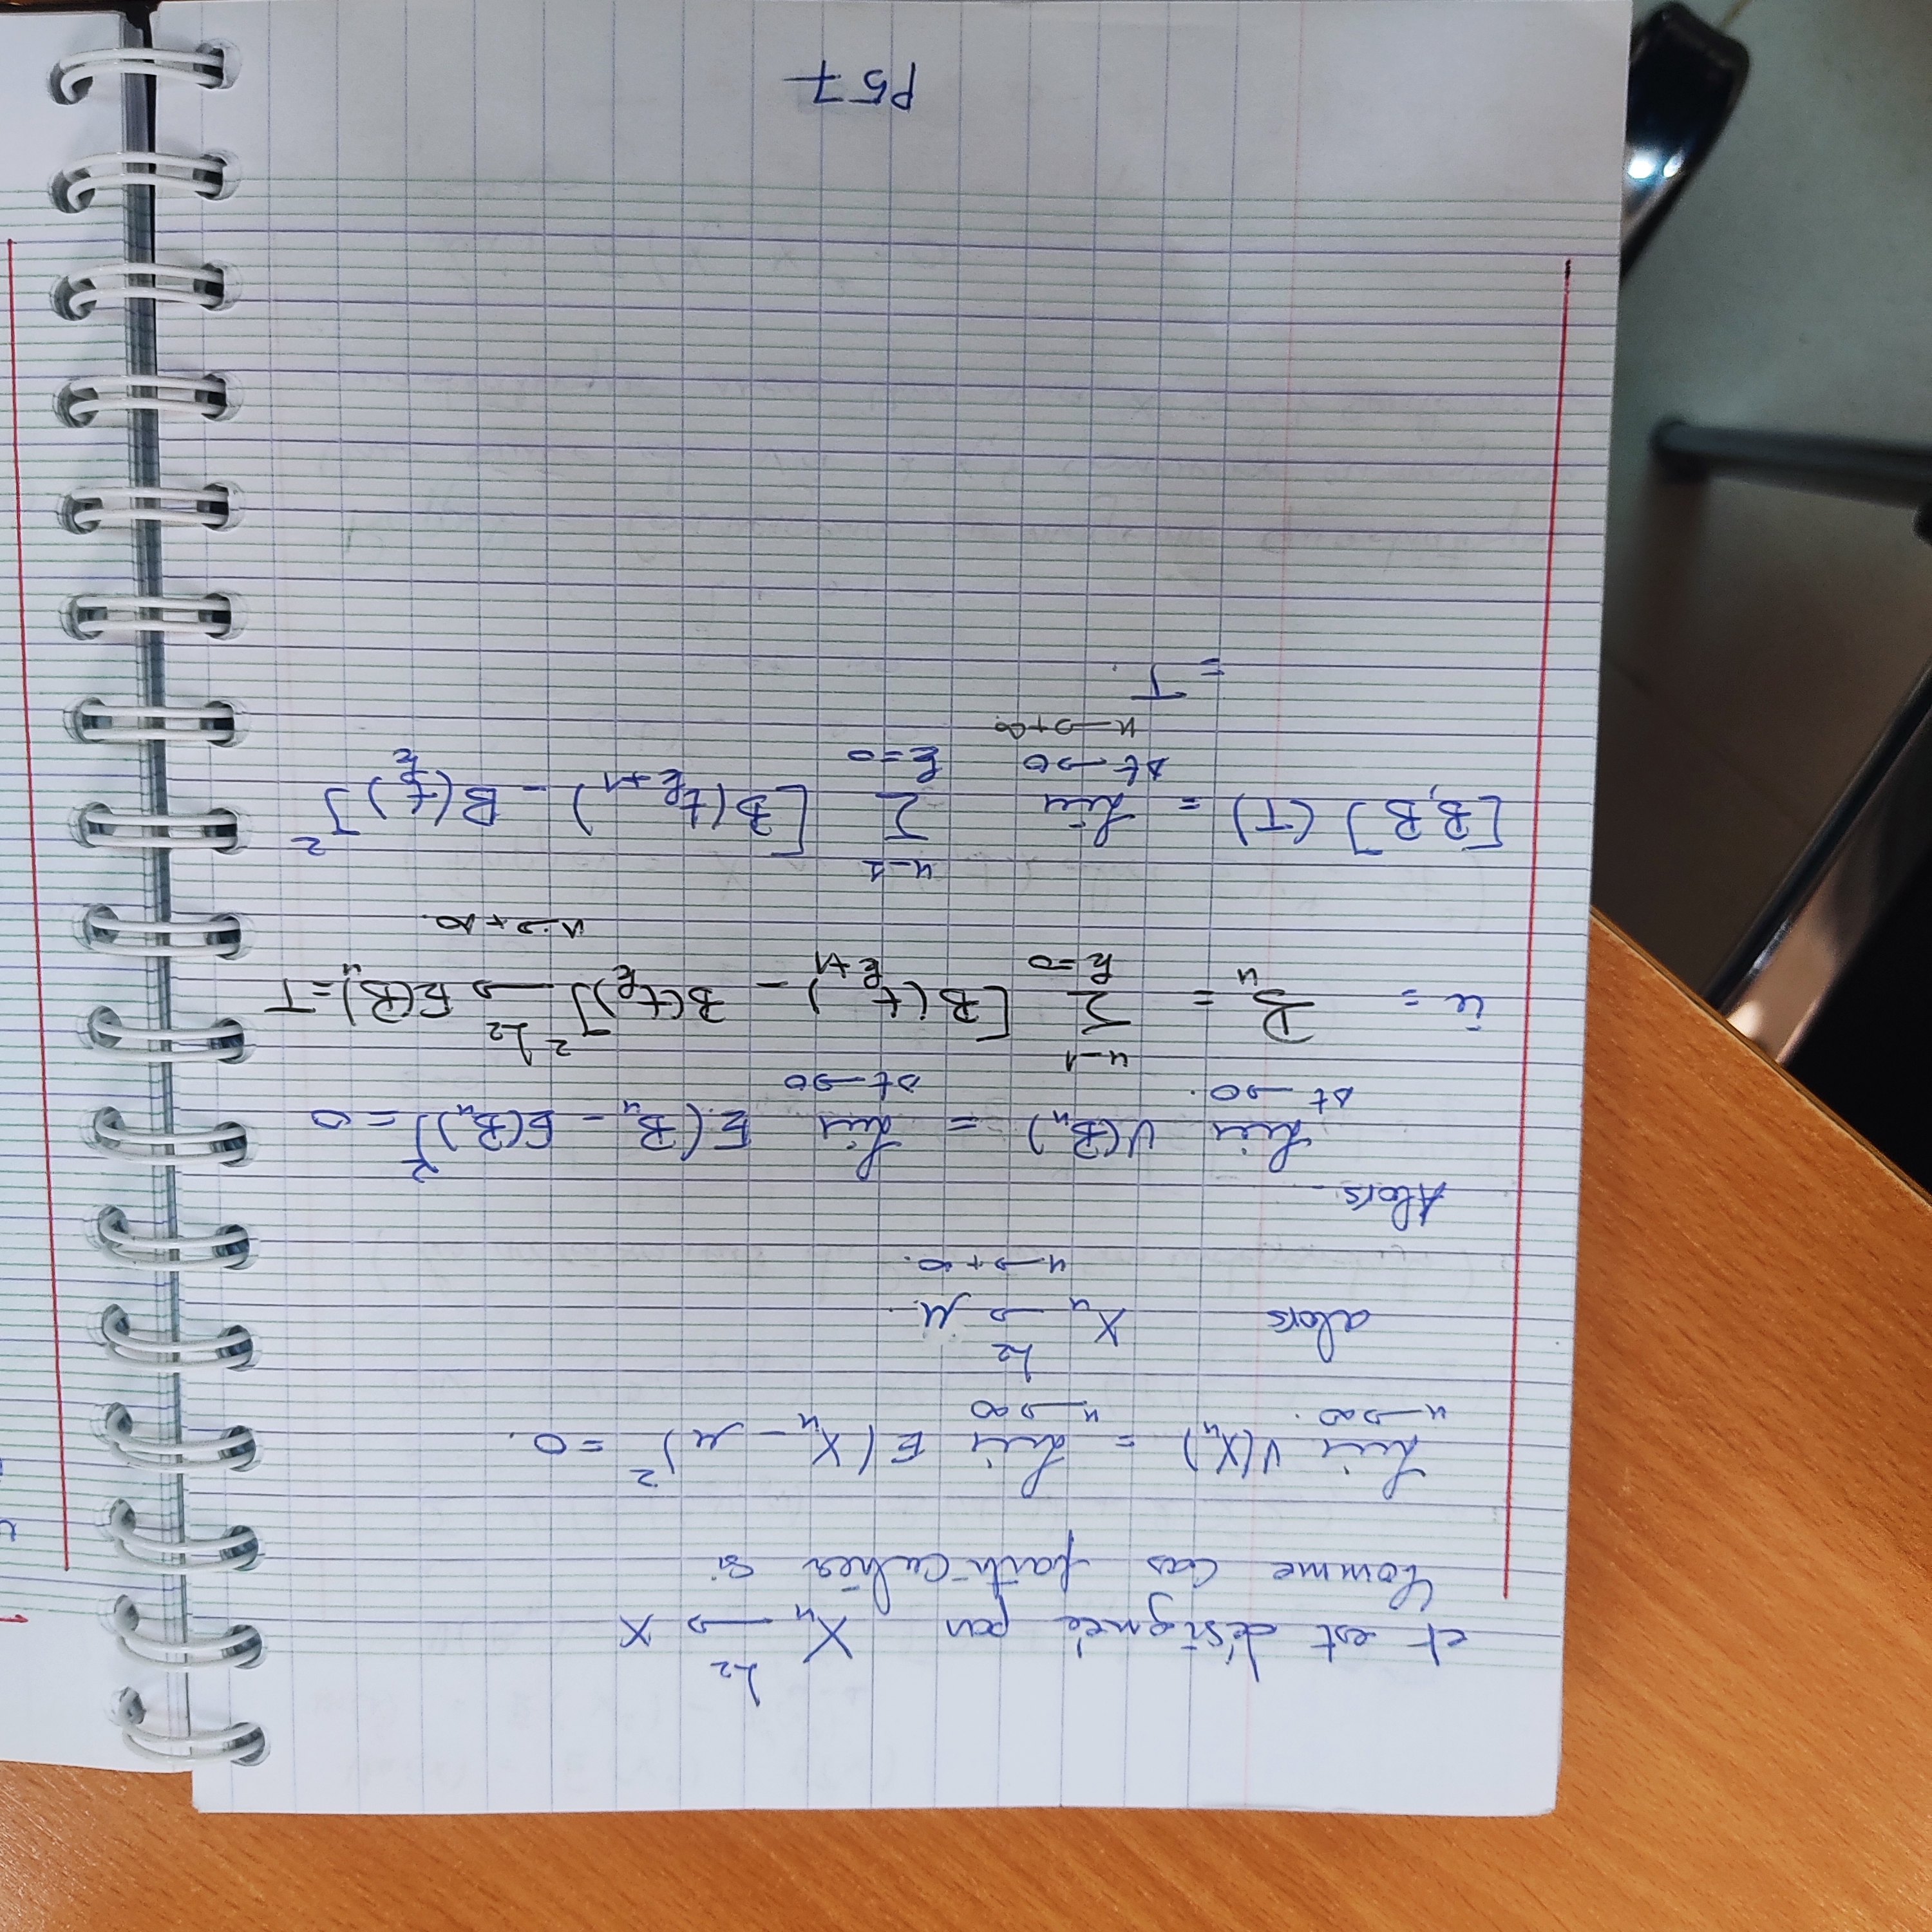 et est désignée par X_n \xrightarrow{L_2} X
Comme cas particulier si
\lim_{n→∞} V(X_n) = \lim_{n→∞} E(X_n - μ)^2 = 0.
alors X_n \xrightarrow{L_2} μ. n→+∞.
Alors
\lim_{Δt→0} V(B_n) = \lim_{Δt→0} E(B_n - E(B_n))^2 = 0
ie = B_n = \sum_{k=0}^{n-1} [B(t_{k+1}) - B(t_k)]^2 \xrightarrow{L_2} E(B_n) = T n→+∞.
[B,B](T) = \lim_{Δt→0, n→+∞} \sum_{k=0}^{n-1} [B(t_{k+1}) - B(t_k)]^2
= T.
P57